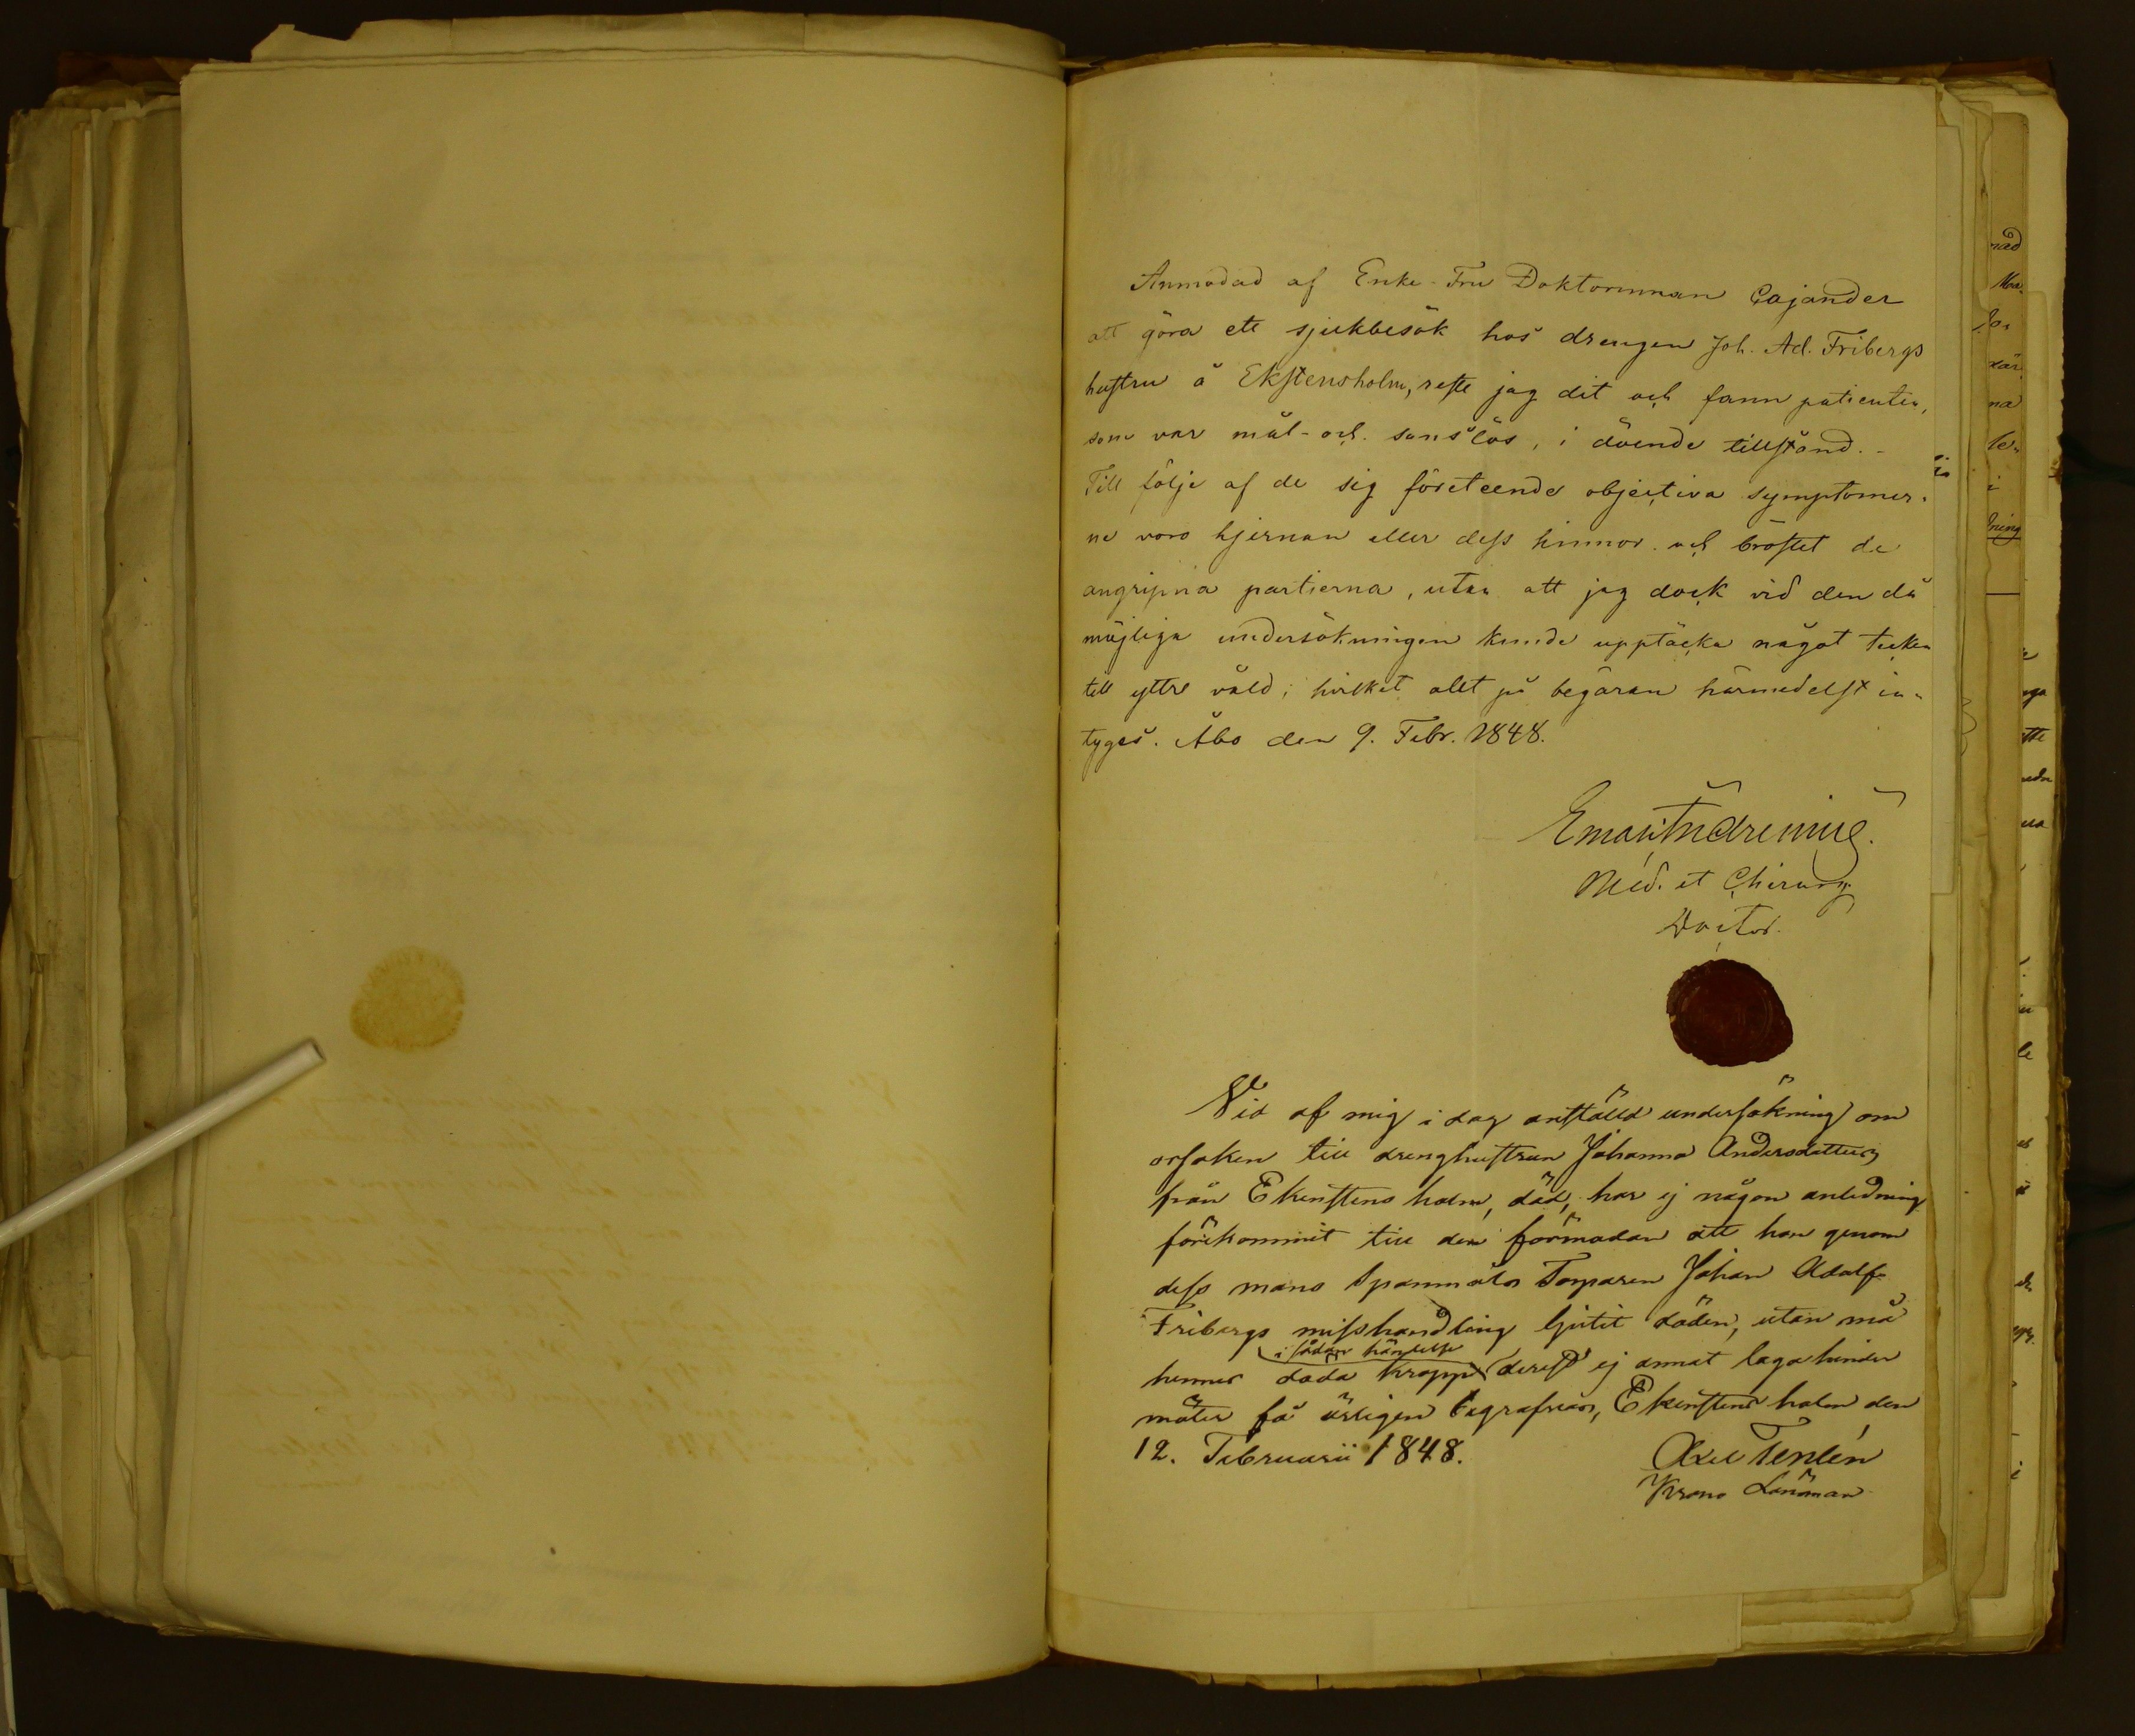 Anmodad af Enke-Fru Doktorinnan Cajander
att göra ett sjukbesök hos drengen Joh. Ad. Fribergs
hustru å Ekstensholm, reste jag dit och fann patienten,
som var mål- och sanslös, i döende tillstånd. -
Till följe af de sig företeende objectiva symptomer-
ne voro hjernan eller dess hinnor och bröstet de
angripna partierna, utan att jag dock vid den då
möjliga undersökningen kunde upptäcka något tecken
till yttre våld; hvilket allt på begäran härmedelst in-
tygas. Åbo den 9. Febr. 1848.
Med. et Chirurg.
Doctor.
Vid af mig i dag anställd undersökning om
orsaken till drenghustrun Johanna Andersdotters
från Ekenstensholm, död, har ej någon anledning
förekommit till den förmodan att hon genom
dess mans Spannmåls Torparen Johan Adolf
Fribergs misshandling ljutit döden, utan må
i sådan händelse
hennes döda kropp derest ej annat laga hinder
möter få ärligen begrafvas, Ekenstensholm den
12. Februarii 1848. Axel Tenlén
Krono Länsman
nad
na
i
ning
tte